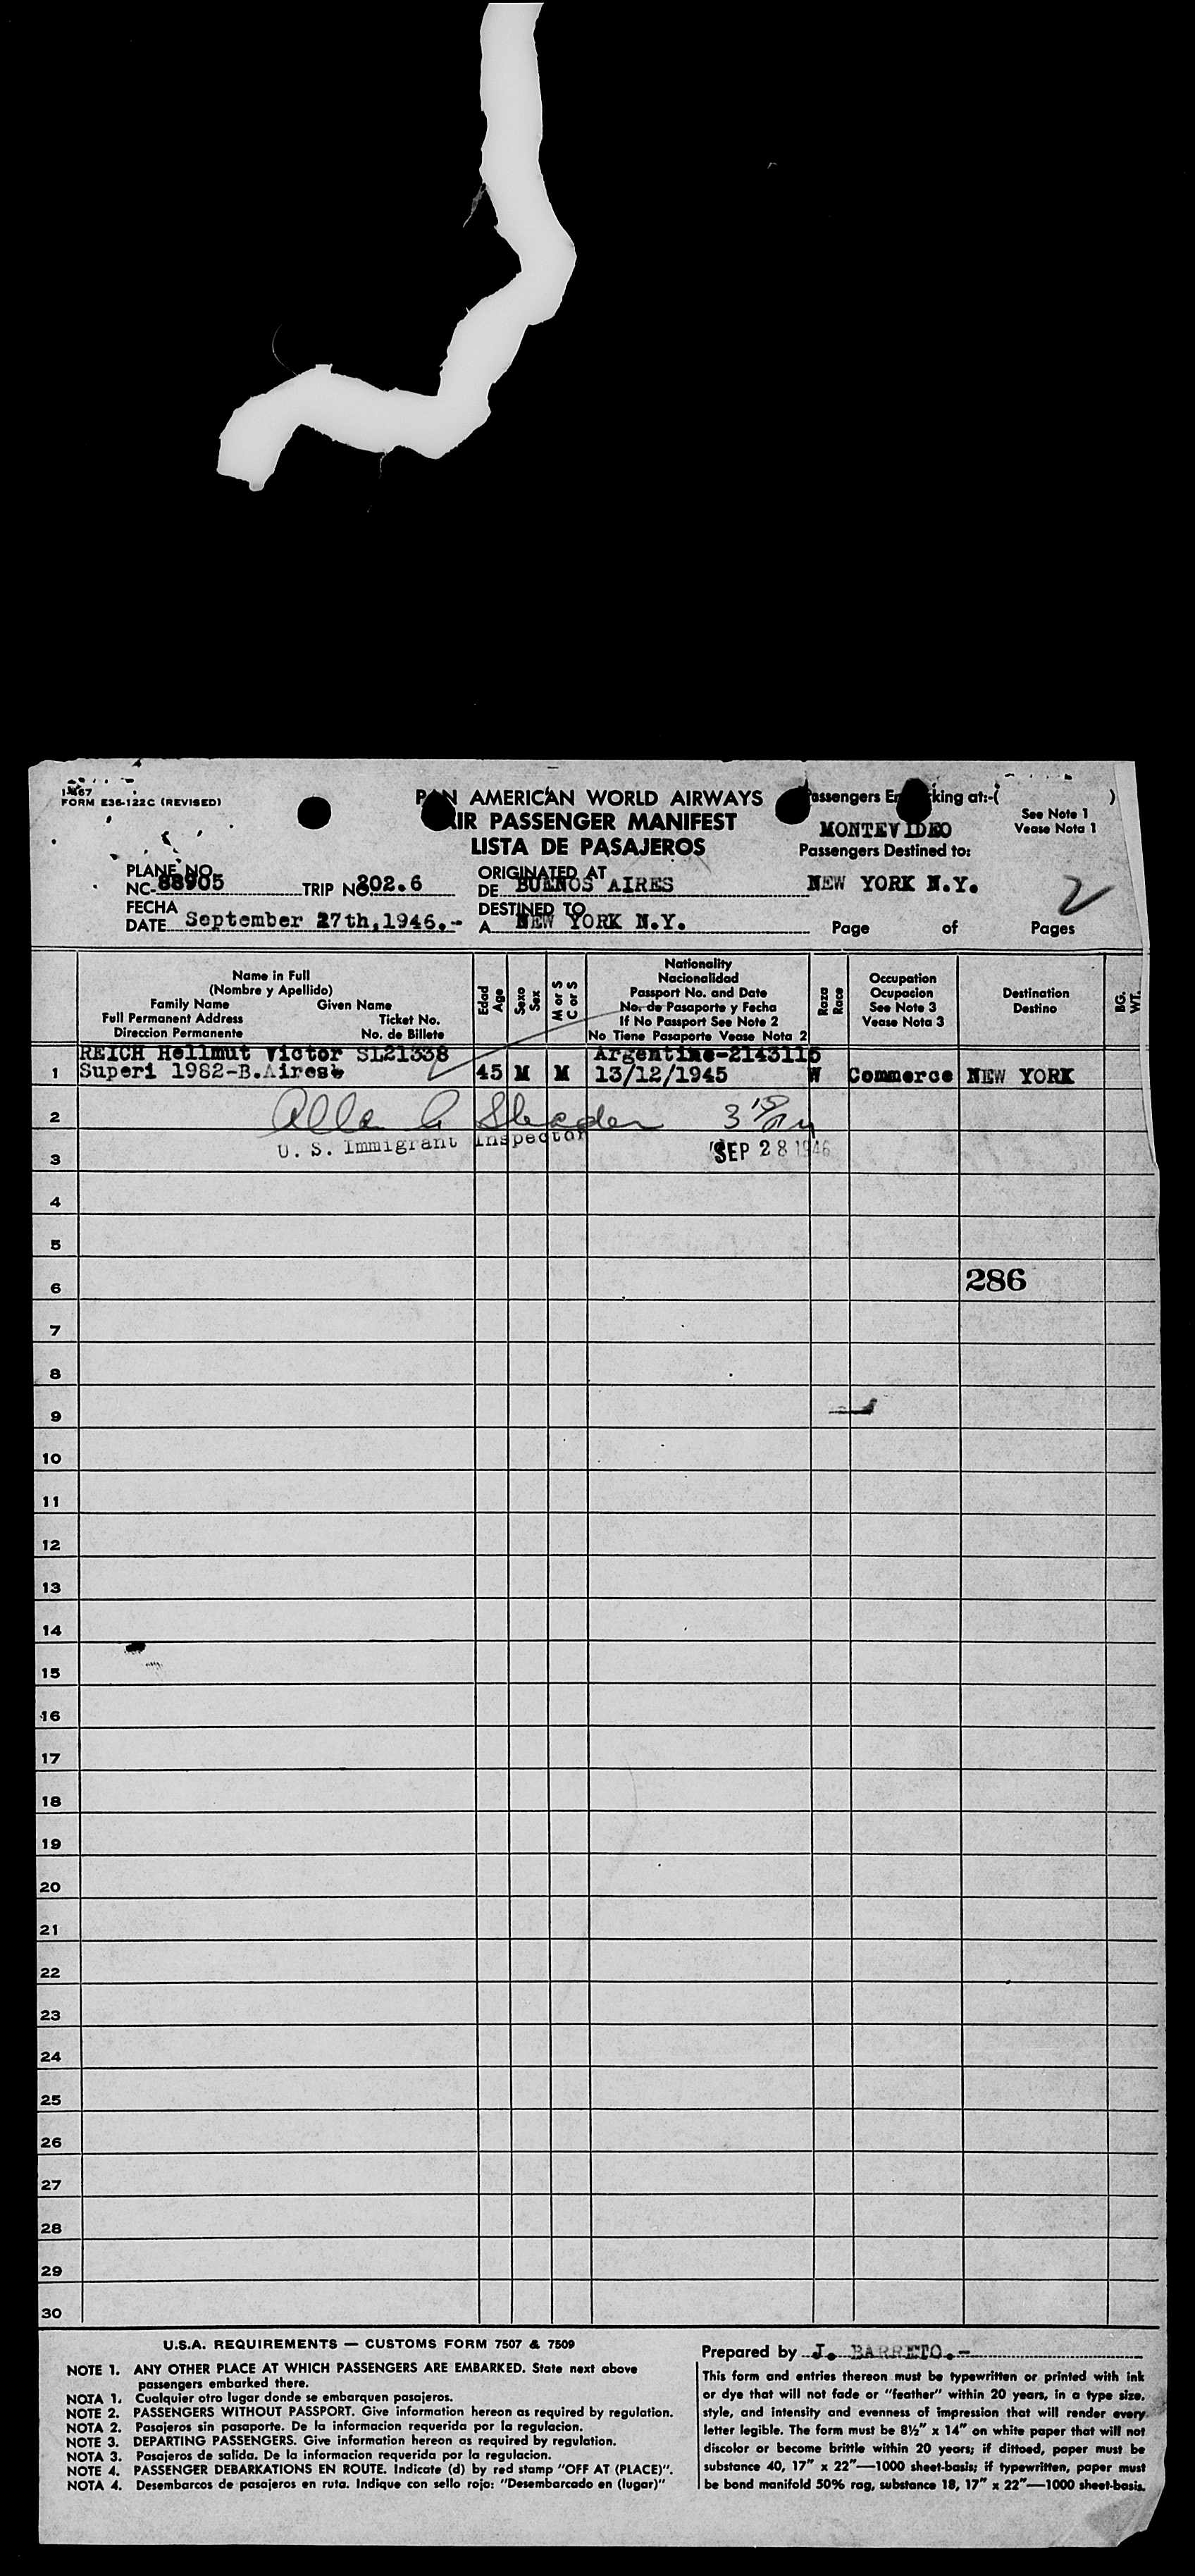 FORM E36-122C (REVISED)
PAN AMERICAN WORLD AIRWAYS
AIR PASSENGER MANIFEST
LISTA DE PASAJEROS
Passengers Embarking at:-( )
MONTEVIDEO
Passengers Destined to:
NEW YORK N.Y.
See Note 1
Vease Nota 1
PLANE NO.
NC- 88905 TRIP NO. 202.6
FECHA
DATE September 27th,1946.-
ORIGINATED AT
DE BUENOS AIRES
DESTINED TO
A NEW YORK N.Y.
2
Page of Pages
Name in Full
(Nombre y Apellido)
Family Name Given Name
Full Permanent Address Ticket No.
Direccion Permanente No. de Billete
Edad
Age
Sexo
Sex
M or S
C or S
Nationality
Nacionalidad
Passport No. and Date
No. de Pasaporte y Fecha
If No Passport See Note 2
No Tiene Pasaporte Vease Nota 2
Raza
Race
Occupation
Ocupacion
See Note 3
Vease Nota 3
Destination
Destino
BG.
WT.
REICH Hellmut Victor SL21338 Argentine-2143115
1 Superi 1982-B.Aires 45 M M 13/12/1945 W Commerce NEW YORK
2
U. S. Immigrant Inspector
3 SEP 28 1946
4
5
6 286
7
8
9
10
11
12
13
14
15
16
17
18
19
20
21
22
23
24
25
26
27
28
29
30
U.S.A. REQUIREMENTS — CUSTOMS FORM 7507 & 7509
NOTE 1. ANY OTHER PLACE AT WHICH PASSENGERS ARE EMBARKED. State next above
passengers embarked there.
NOTA 1. Cualquier otro lugar donde se embarquen pasajeros.
NOTE 2. PASSENGERS WITHOUT PASSPORT. Give information hereon as required by regulation.
NOTA 2. Pasajeros sin pasaporte. De la informacion requerida por la regulacion.
NOTE 3. DEPARTING PASSENGERS. Give information hereon as required by regulation.
NOTA 3. Pasajeros de salida. De la informacion requerida por la regulacion.
NOTE 4. PASSENGER DEBARKATIONS EN ROUTE. Indicate (d) by red stamp "OFF AT (PLACE)".
NOTA 4. Desembarcos de pasajeros en ruta. Indique con sello rojo: "Desembarcado en (lugar)"
Prepared by J. BARRETO.-
This form and entries thereon must be typewritten or printed with ink
or dye that will not fade or "feather" within 20 years, in a type size,
style, and intensity and evenness of impression that will render every
letter legible. The form must be 8½" x 14" on white paper that will not
discolor or become brittle within 20 years; if dittoed, paper must be
substance 40, 17" x 22"—1000 sheet-basis; if typewritten, paper must
be bond manifold 50% rag, substance 18, 17" x 22"—1000 sheet-basis.